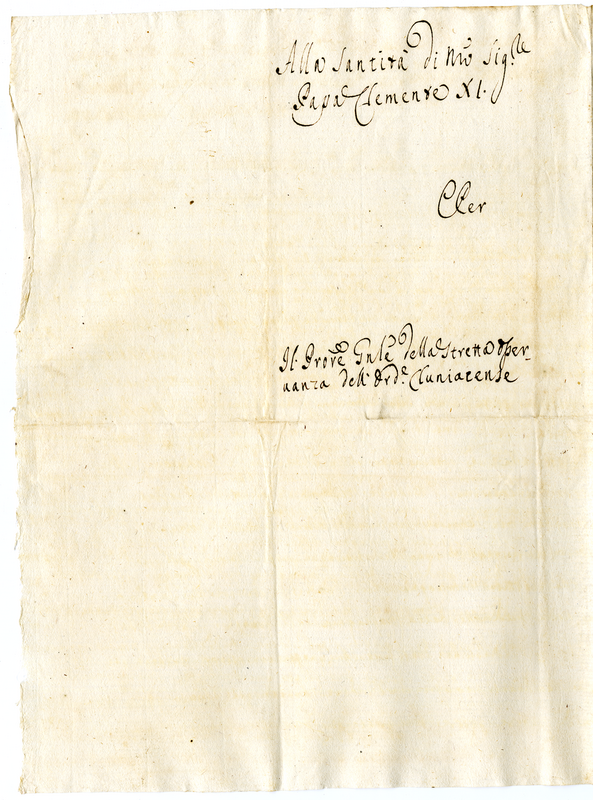 Alla Santità di Nrõ Sig.re
Papa Clemente XI.
Per
Il Procre Gnle della Stretta Osser-
uanza dell' Ord.e Cluniacense